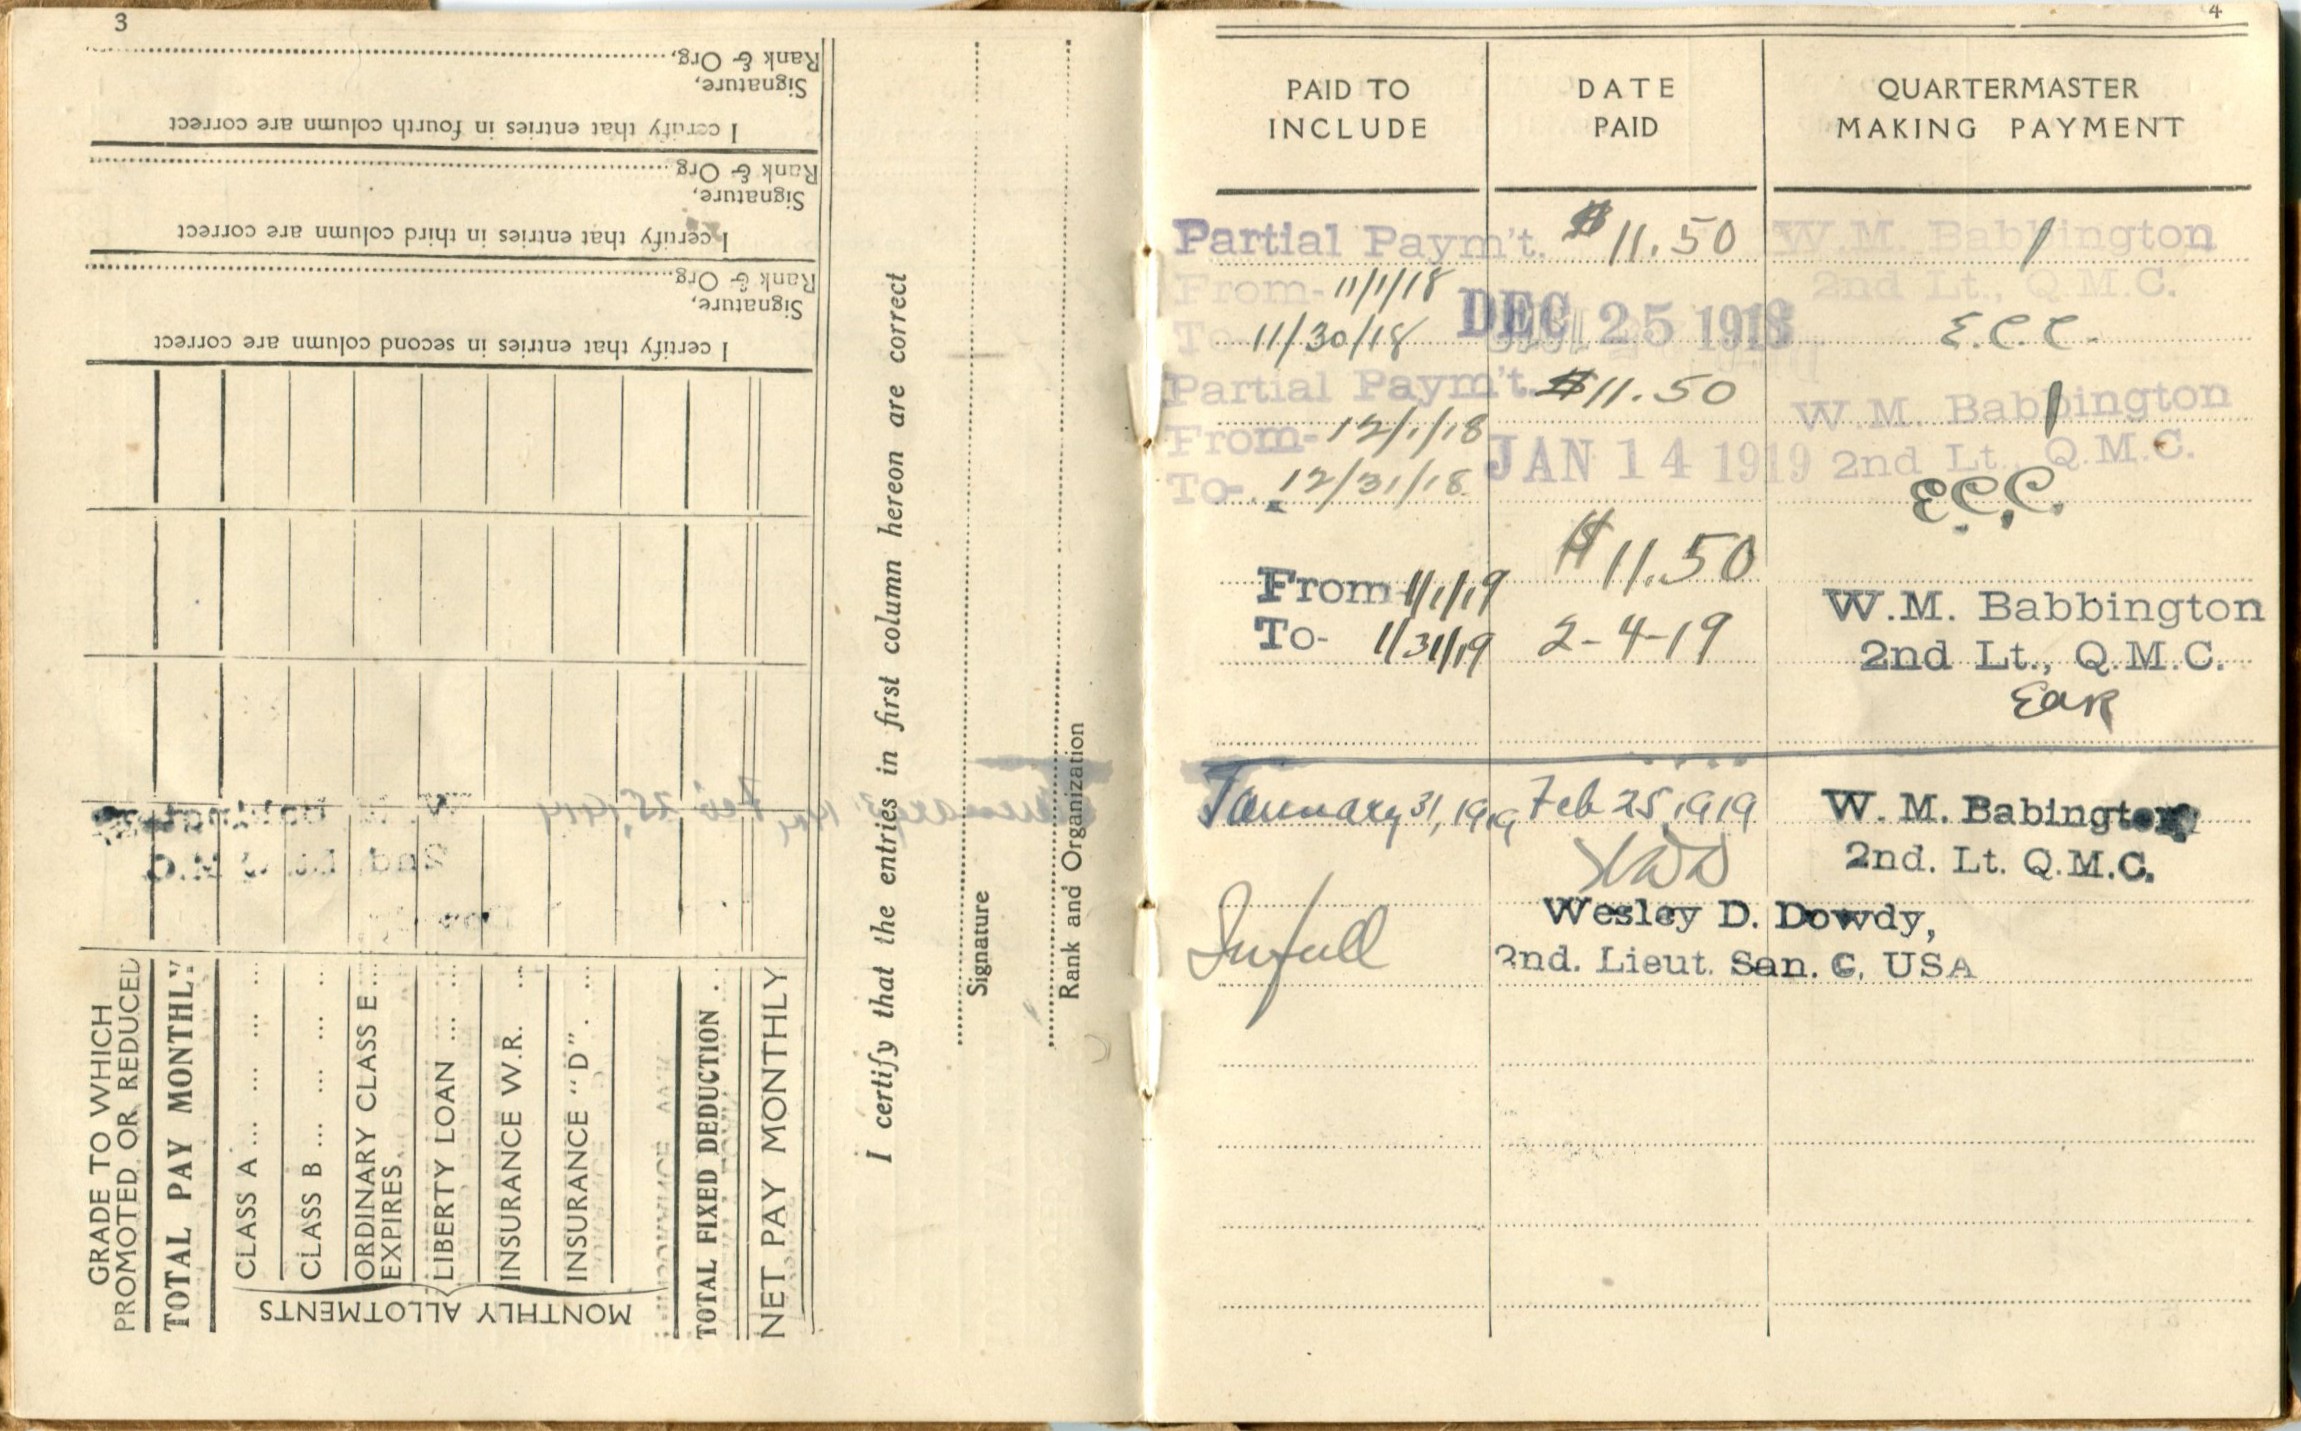 3
I certify that entries in fourth column are correct
Signature,
Rank & Org,
I certify that entries in third column are correct
Signature,
Rank & Org,
I certify that entries in second column are correct
Signature,
Rank & Org,
GRADE TO WHICH
PROMOTED OR REDUCED
TOTAL PAY MONTHLY
MONTHLY ALLOTMENTS
CLASS A
CLASS B
ORDINARY CLASS E
EXPIRES
LIBERTY LOAN
INSURANCE W.R.
INSURANCE "D"
TOTAL FIXED DEDUCTION
NET PAY MONTHLY
I certify that the entries in first column hereon are correct
Signature
Rank and Organization
4
PAID TO INCLUDE
DATE PAID
QUARTERMASTER MAKING PAYMENT
Partial Paym't. $11.50 W.M. Babbington
From- 11/1/18 2nd Lt., Q.M.C.
To 11/30/18 DEC 25 1918 E.C.C.
Partial Paym't. $11.50 W.M. Babbington
From- 12/1/18
To- 12/31/18 JAN 14 1919 2nd Lt., Q.M.C.
E.C.C.
$11.50
From 1/1/19 W.M. Babbington
To- 1/31/19 2-4-19 2nd Lt., Q.M.C.
EAR
January 31, 1919 Feb 25, 1919 W. M. Babington
2nd. Lt. Q.M.C.
In full Wesley D. Dowdy,
2nd. Lieut. San. C, USA